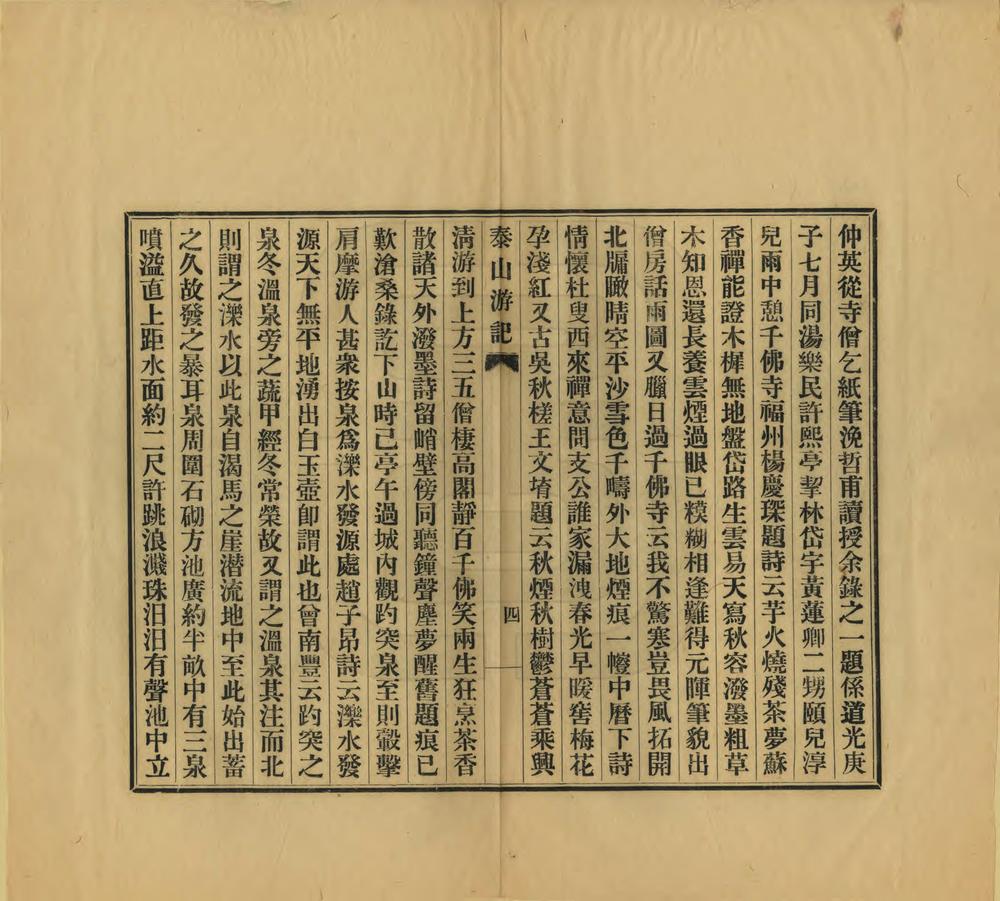 仲英從寺僧乞紙筆浼哲甫讀授余錄之一題係道光庚
子七月同湯樂民許熙亭挈林岱宇黃蓮卿二甥頤兒淳
兒雨中憩千佛寺福州楊慶琛題詩云芋火燒殘茶夢蘇
香禪能證木樨無地盤岱路生雲易天寫秋容潑墨粗草
木知恩還長養雲煙過眼已糢糊相逢難得元暉筆貌出
僧房話雨圖又臘日過千佛寺云我不驚寒豈畏風拓開
北牖瞰晴空平沙雪色千疇外大地煙痕一幰中曆下詩
情懷杜叟西來禪意問支公誰家漏洩春光早暖窖梅花
孕淺紅又古吳秋槎王文堉題云秋煙秋樹鬱蒼蒼乘興
泰山游記 四
清游到上方三五僧棲高閣靜百千佛笑兩生狂烹茶香
散諸天外潑墨詩留峭壁傍同聽鐘聲塵夢醒舊題痕已
歎滄桑錄訖下山時已亭午過城內觀趵突泉至則轂擊
肩摩游人甚衆按泉爲濼水發源處趙子昂詩云濼水發
源天下無平地湧出白玉壺卽謂此也曾南豐云趵突之
泉冬溫泉旁之蔬甲經冬常榮故又謂之溫泉其注而北
則謂之濼水以此泉自渴馬之崖潛流地中至此始出蓄
之久故發之暴耳泉周圍石砌方池廣約半畝中有三泉
噴溢直上距水面約二尺許跳浪濺珠汨汨有聲池中立